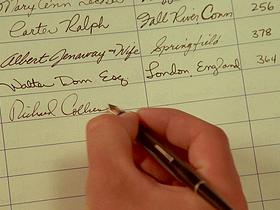 Mary Ann
Carter Ralph Fall River Conn 256
Albert Janaway & Wife Springfield 378
Walter Dorn Esq. London England 364
Richard Collier